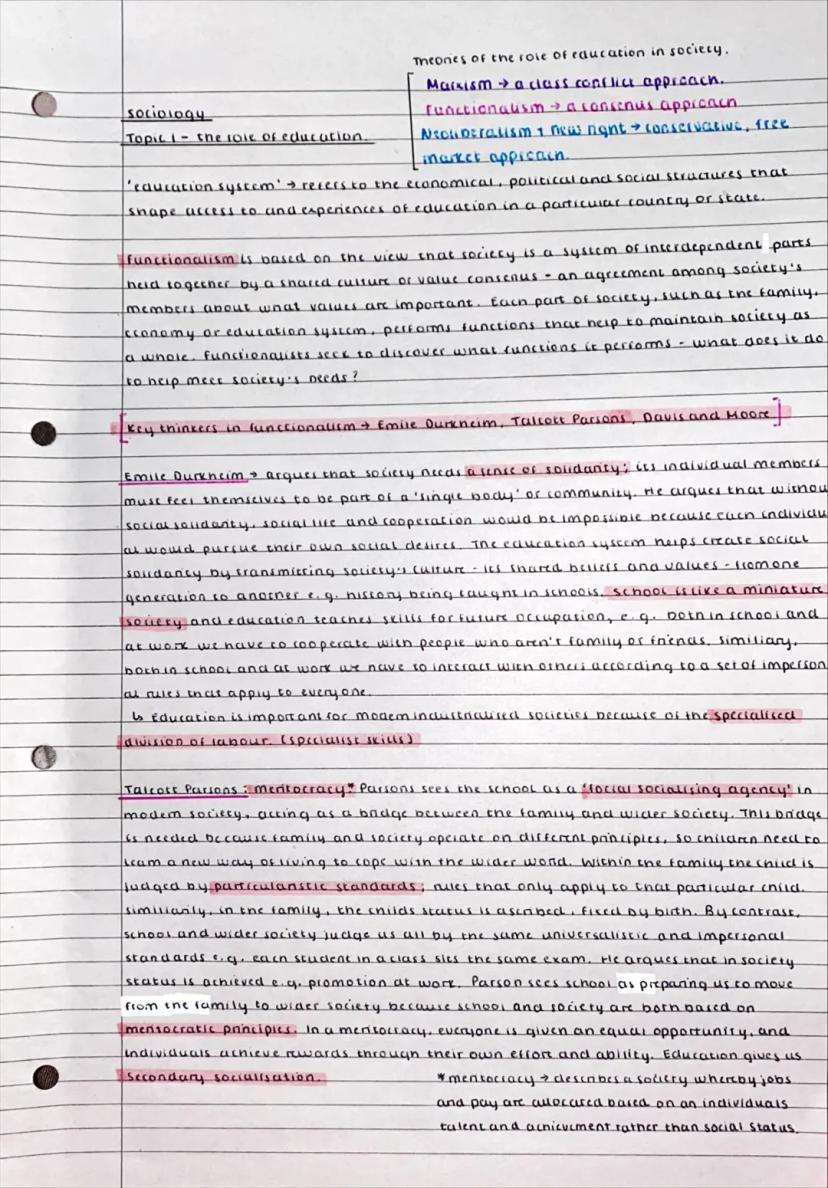 Theories of the role of education in society.
Marxism → a class conflict approach.
Functionalism → a consenus approach
Neoliberalism + new right → conservative, free
market approach.
Sociology
Topic 1 - the role of education.
'education system' → refers to the economical, political and social structures that
shape access to and experiences of education in a particular country or state.
Functionalism is based on the view that society is a system of interdependent parts
held together by a shared culture or value consenus - an agreement among society's
members about what values are important. Each part of society, such as the family,
economy or education system, performs functions that help to maintain society as
a whole. Functionalists seek to discover what functions it performs - what does it do
to help meet society's needs?
[Key thinkers in functionalism → Emile Durkheim, Talcott Parsons, Davis and Moore]
Emile Durkheim → argues that society needs a sense of solidarity; its individual members
must feel themselves to be part of a 'single body' or community. He argues that withou
social solidarity, social life and cooperation would be impossible because each individu
al would pursue their own social desires. The education system helps create social
solidarity by transmitting society's culture - its shared beliefs and values - from one
generation to another e.g. history being taught in schools. School is like a miniature
society and education teaches skills for future occupation, e.g. both in school and
at work we have to cooperate with people who aren't family or friends. Similiary,
both in school and at work we have to interact with others according to a set of imperson
al rules that apply to everyone.
↳ Education is important for modern industrialised societies because of the specialised
division of labour. (specialist skills)
Talcott Parsons: meritocracy* Parsons sees the school as a 'focial socialising agency' in
modern society, acting as a bridge between the family and wider society. This bridge
is needed because family and society operate on different principles, so children need to
learn a new way of living to cope with the wider world. Within the family the child is
judged by particularistic standards; rules that only apply to that particular child.
Similiarly, in the family, the childs status is ascribed, fixed by birth. By contrast,
school and wider society judge us all by the same universalistic and impersonal
standards e.g. each student in a class sits the same exam. He argues that in society
status is achieved e.g. promotion at work. Parson sees school as preparing us to move
from the family to wider society because school and society are both based on
meritocratic principles. In a meritocracy, everyone is given an equal opportunity, and
individuals achieve rewards through their own effort and ability. Education gives us
secondary socialisation.
*meritocracy → describes a society whereby jobs
and pay are allocated based on an individuals
talent and achievement rather than social status.